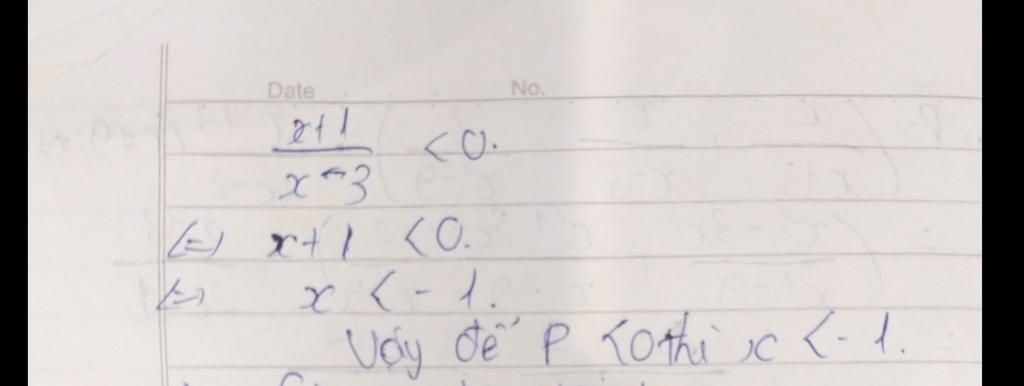 Date No.
x+1
x-3 <0.
<=> x+1 <0.
<=> x <-1.
Vậy để P <0 thì x <-1.